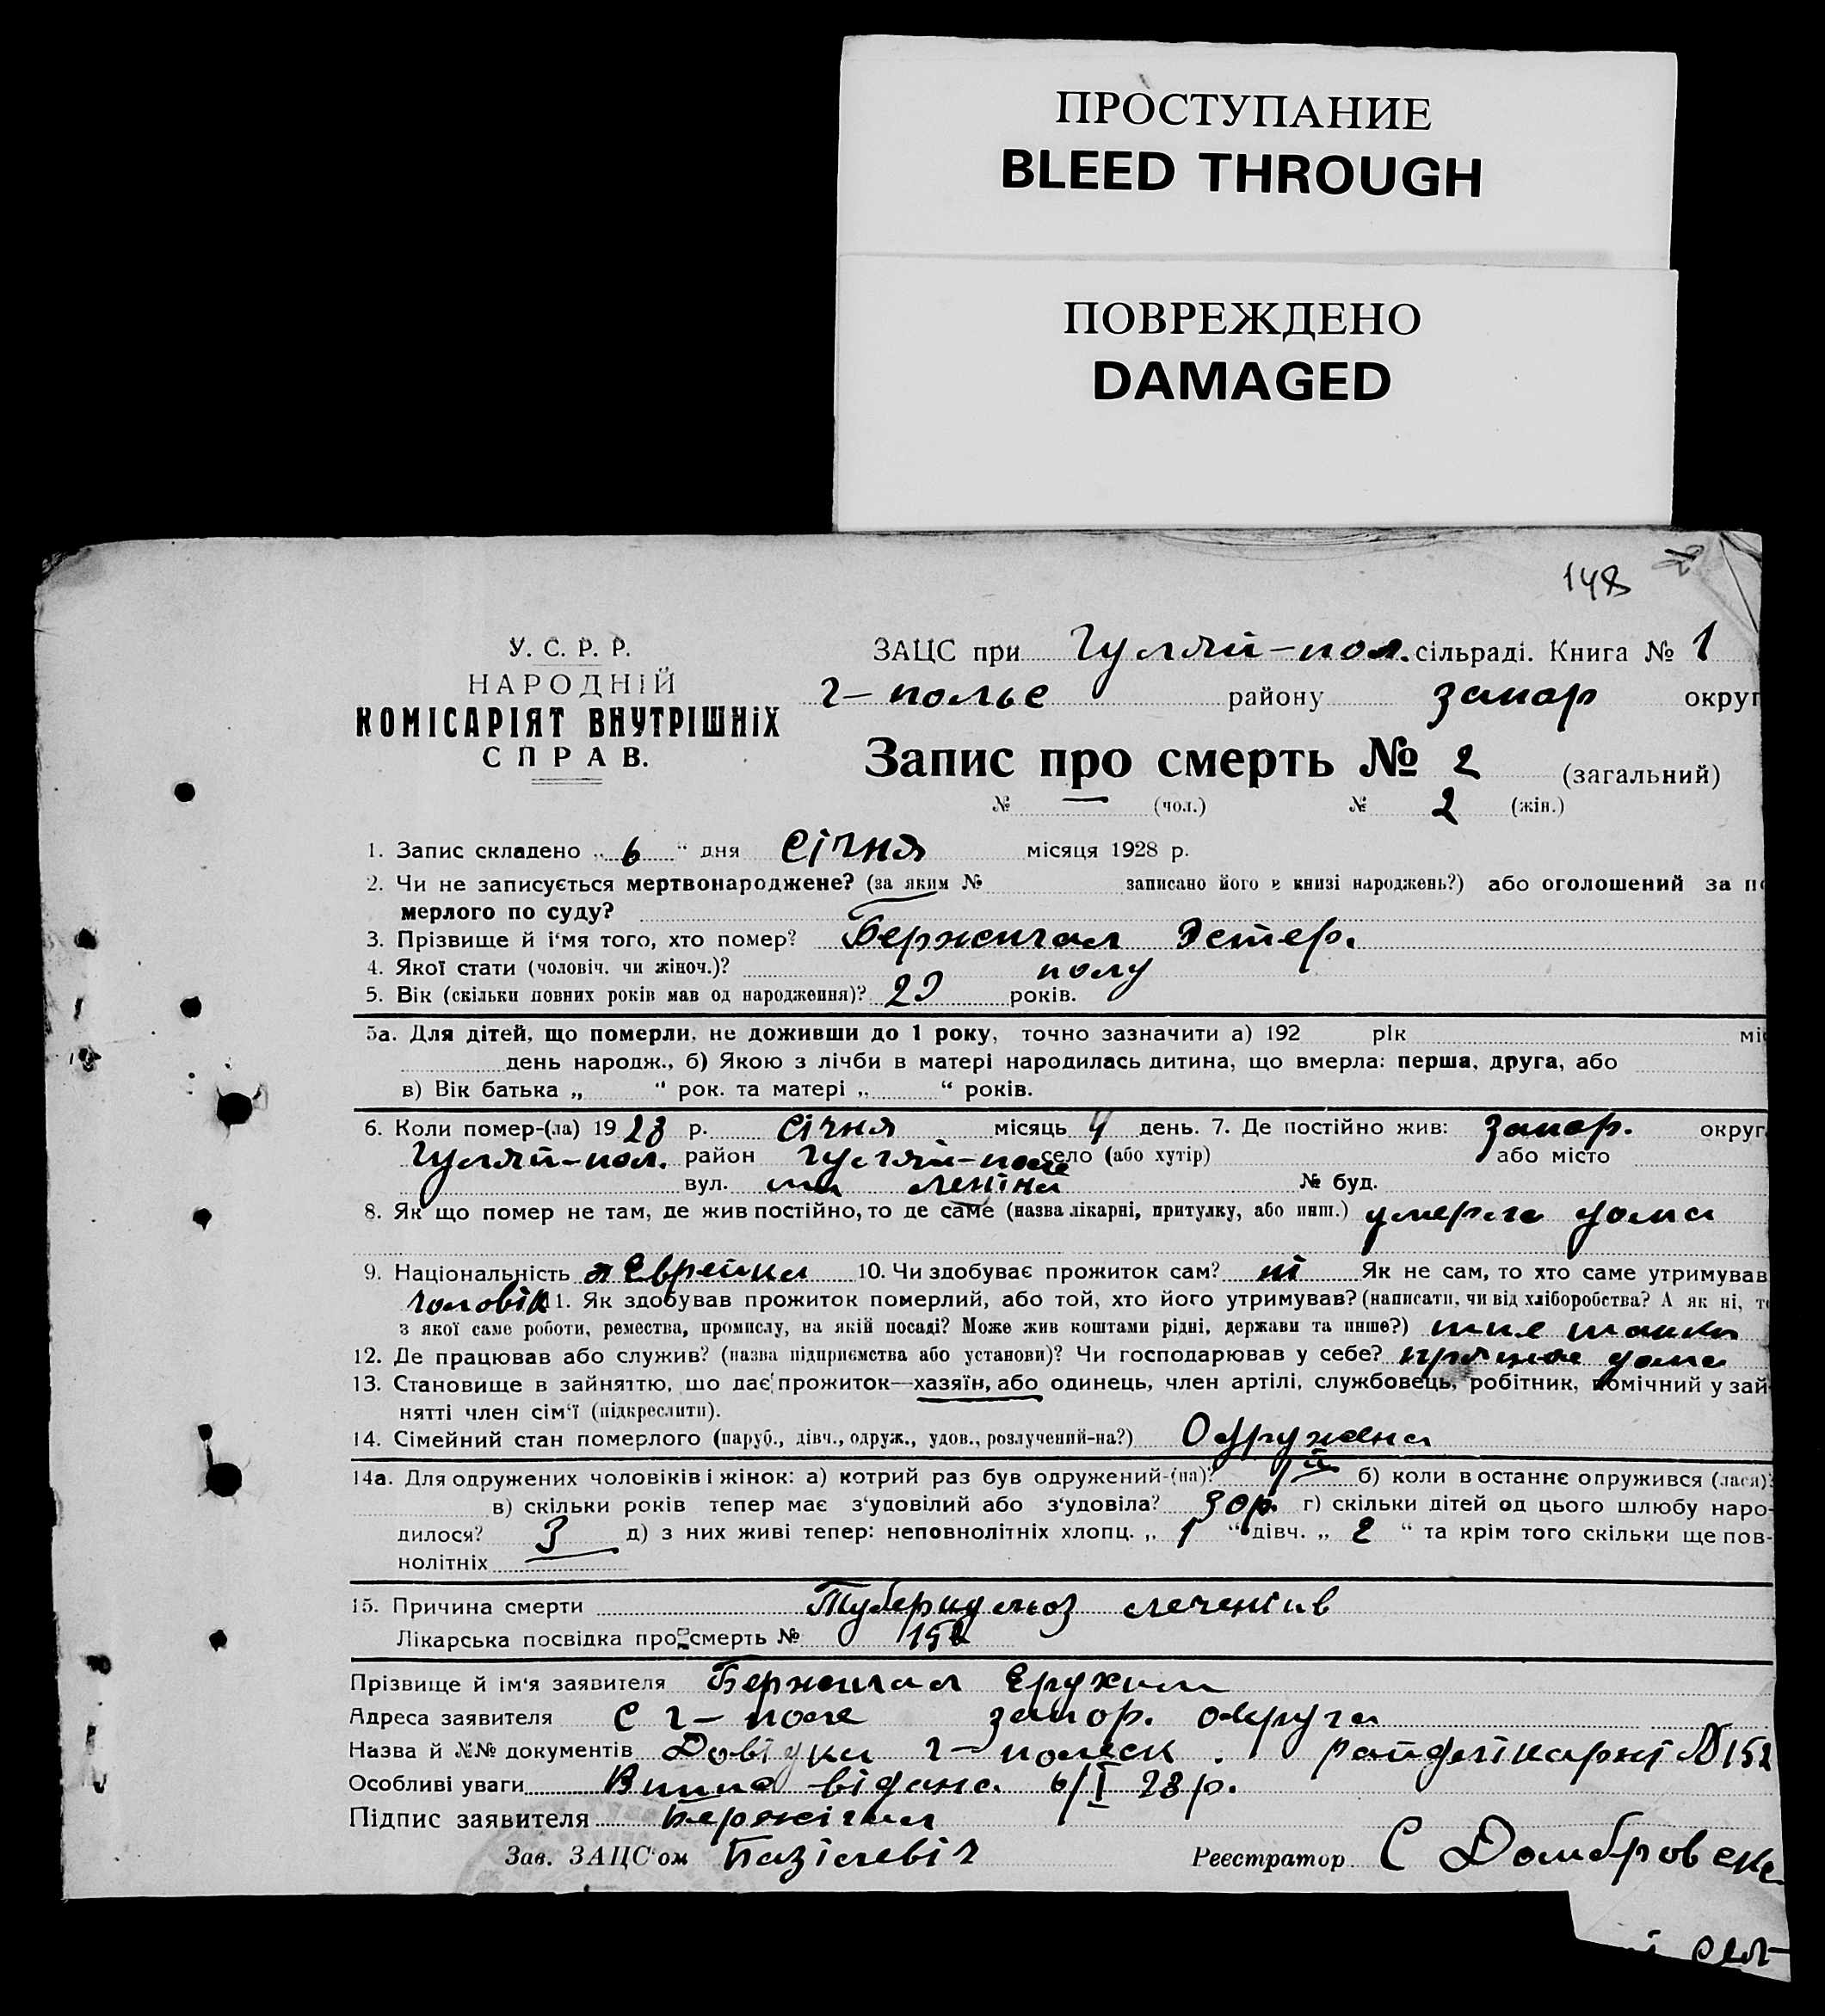 ПРОСТУПАНИЕ
BLEED THROUGH
ПОВРЕЖДЕНО
DAMAGED
148
У. С. Р. Р.
НАРОДНІЙ
КОМІСАРІЯТ ВНУТРІШНІХ
СПРАВ.
ЗАЦС при Гуляй-пол. сільраді. Книга № 1
Г-полье району запор округ
Запис про смерть № 2 (загальний)
№ — (чол.) № 2 (жін.)
1. Запис складено „ 6 “ дня Січня місяця 1928 р.
2. Чи не записується мертвонароджене? (за яким № записано його в книзі народжень?) або оголошений за по
мерлого по суду?
3. Прізвище й і'мя того, хто помер? Бержигал Эстер.
4. Якої стати (чоловіч. чи жіноч.)?
5. Вік (скільки повних років мав од народження)? років.
5а. Для дітей, що померли, не доживши до 1 року, точно зазначити а) 192 рік міс
день народж., б) Якою з лічби в матері народилась дитина, що вмерла: перша, друга, або
в) Вік батька „ “ рок. та матері „ “ років.
6. Коли помер-(ла) 1928 р. січня місяць 4 день. 7. Де постійно жив: запор. округ
Гуляй-пол. район Гуляй-поле село (або хутір) або місто
вул. леніна № буд.
8. Як що помер не там, де жив постійно, то де саме (назва лікарні, притулку, або инш.) умерла дома
9. Національність Еврейка 10. Чи здобуває прожиток сам? ні Як не сам, то хто саме утримував
чоловік 11. Як здобував прожиток померлий, або той, хто його утримував? (написати, чи від хліборобства? А як ні, то
з якої саме роботи, ремества, промислу, на якій посаді? Може жив коштами рідні, держави та инше?) шие шапки
12. Де працював або служив? (назва підприємства або установи)? Чи господарював у себе? дома
13. Становище в зайняттю, що дає прожиток—хазяїн, або одинець, член артілі, службовець, робітник, помічний у зай-
нятті член сім'ї (підкреслити).
14. Сімейний стан померлого (паруб., дівч., одруж., удов., розлучений-на?) Одружена
14а. Для одружених чоловіків і жінок: а) котрий раз був одружений-(на)? 1й б) коли в останнє одружився (лася)?
в) скільки років тепер має з'удовілий або з'удовіла? 30р. г) скільки дітей од цього шлюбу наро-
дилося? 3 д) з них живі тепер: неповнолітніх хлопц. „ 1 “ дівч. „ 2 “ та крім того скільки ще пов-
нолітніх
15. Причина смерти Туберкульоз легенів
Лікарська посвідка про смерть № 152
Прізвище й ім'я заявителя Бержигал Ерухим
Адреса заявителя С Г-поле запор. округа
Назва й №№ документів Довідка Г-польск. райлікарні №152
Особливі уваги видана 6/I 28 р.
Підпис заявителя Бержігал
Зав. ЗАЦС'ом Базілевіч Реєстратор С Домбровск